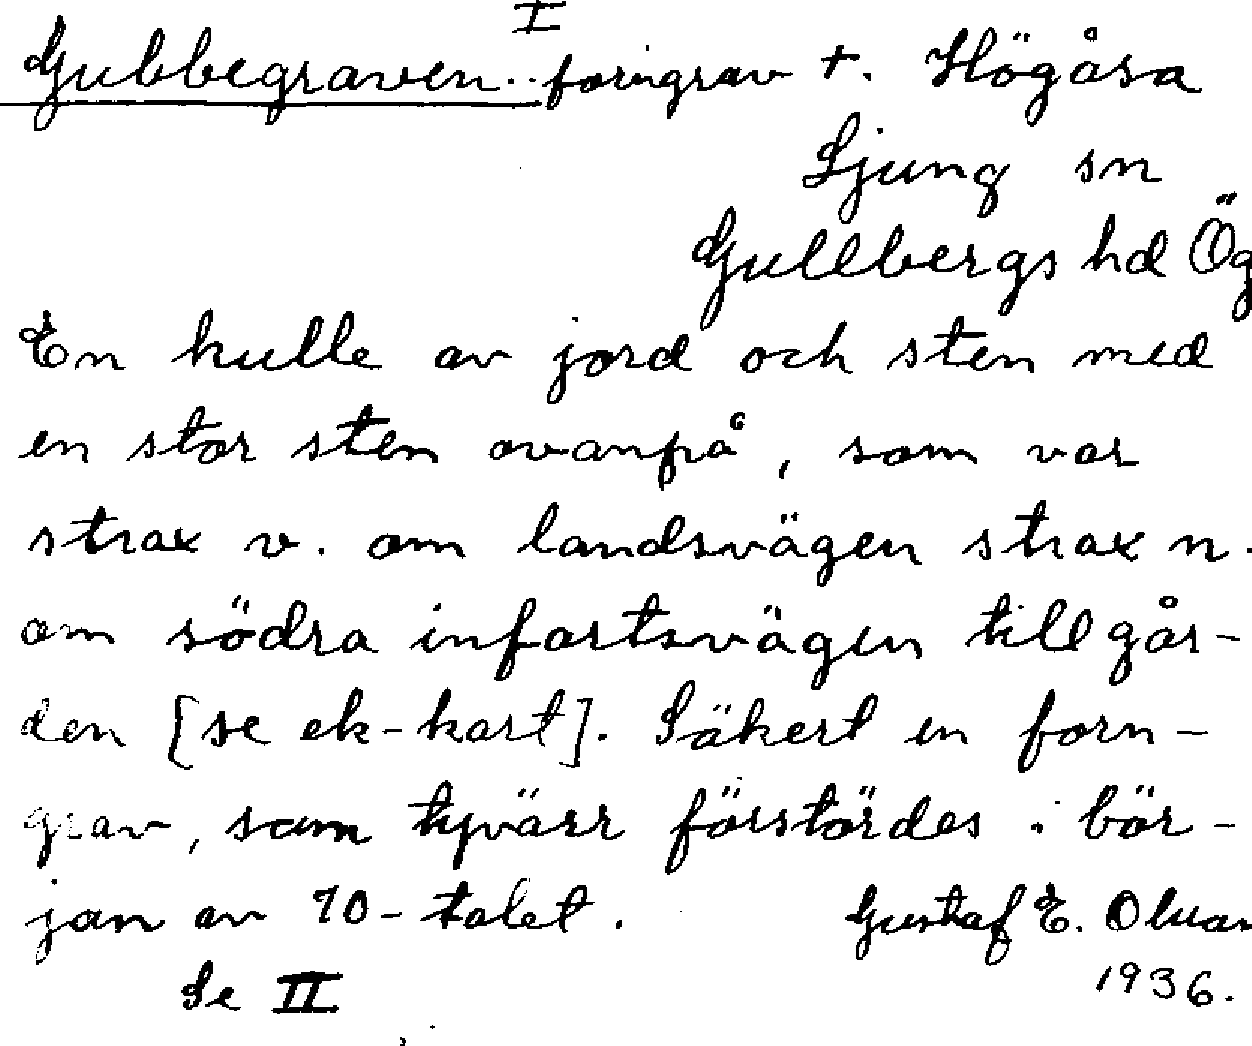 I
Gubbegraven.. forngrav +. Högåsa
Ljung sn
Gullbergs hd Ög
En kulle av jord och sten med
en stor sten ovanpå, som var
strax v. om landsvägen strax n.
om södra infartsvägen till går-
den [se ek-kart]. Säkert en forn-
grav, som tyvärr förstördes i bör-
jan av 10-talet. Gustaf E.
Se II 1936.